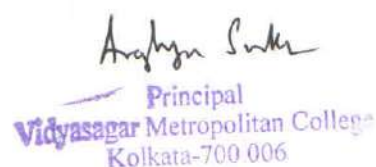 Principal
Vidyasagar Metropolitan College
Kolkata-700 006